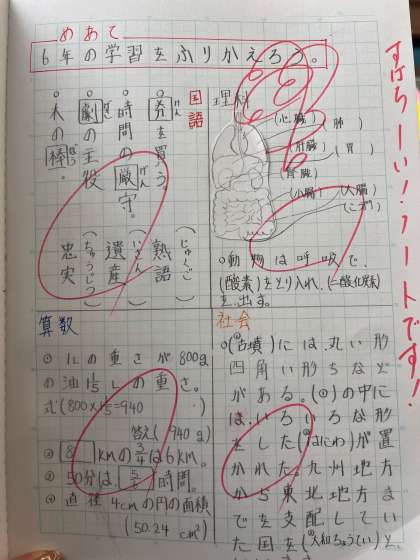 めあて
6年の学習をふりかえろう。
すばらしーい!ノートです!
国語
○券を買う
けん
○時間の厳守。
げん
○劇の主役
げき
○木の棒。
ぼう
(じゅくご)
熟語
(いさん)
遺産
(ちゅうじつ)
忠実
理科
(心臓)
(肺)
(肝臓)
(胃)
(腎臓)
(小腸)
(大腸)
○動物は呼吸で、
(酸素)をとり入れ、(二酸化炭素)
を出す。
算数
① 1Lの重さが800g
の油1 1/5Lの重さ。
式(800×1 1/5=940)
答え(940g)
②(8)kmの3/4は6km。
③50分は、5/6時間。
④直径4cmの円の面積
(50.24cm²)
社会
○(古墳)には、丸い形
四角い形ちなど
がある。(①)の中に
は、いろいろな形
をした(はにわ)が置
かれた。九州地方
から東北地方ま
でを支配してい
た国を(大和ちょうてい)と、